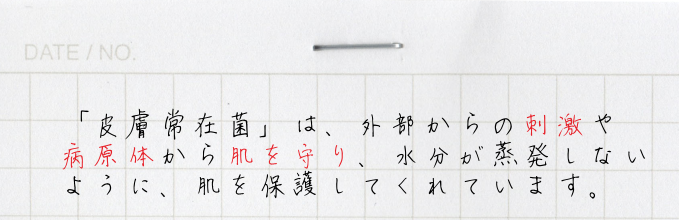 DATE / NO.
「皮膚常在菌」は、外部からの刺激や
病原体から肌を守り、水分が蒸発しない
ように、肌を保護してくれています。